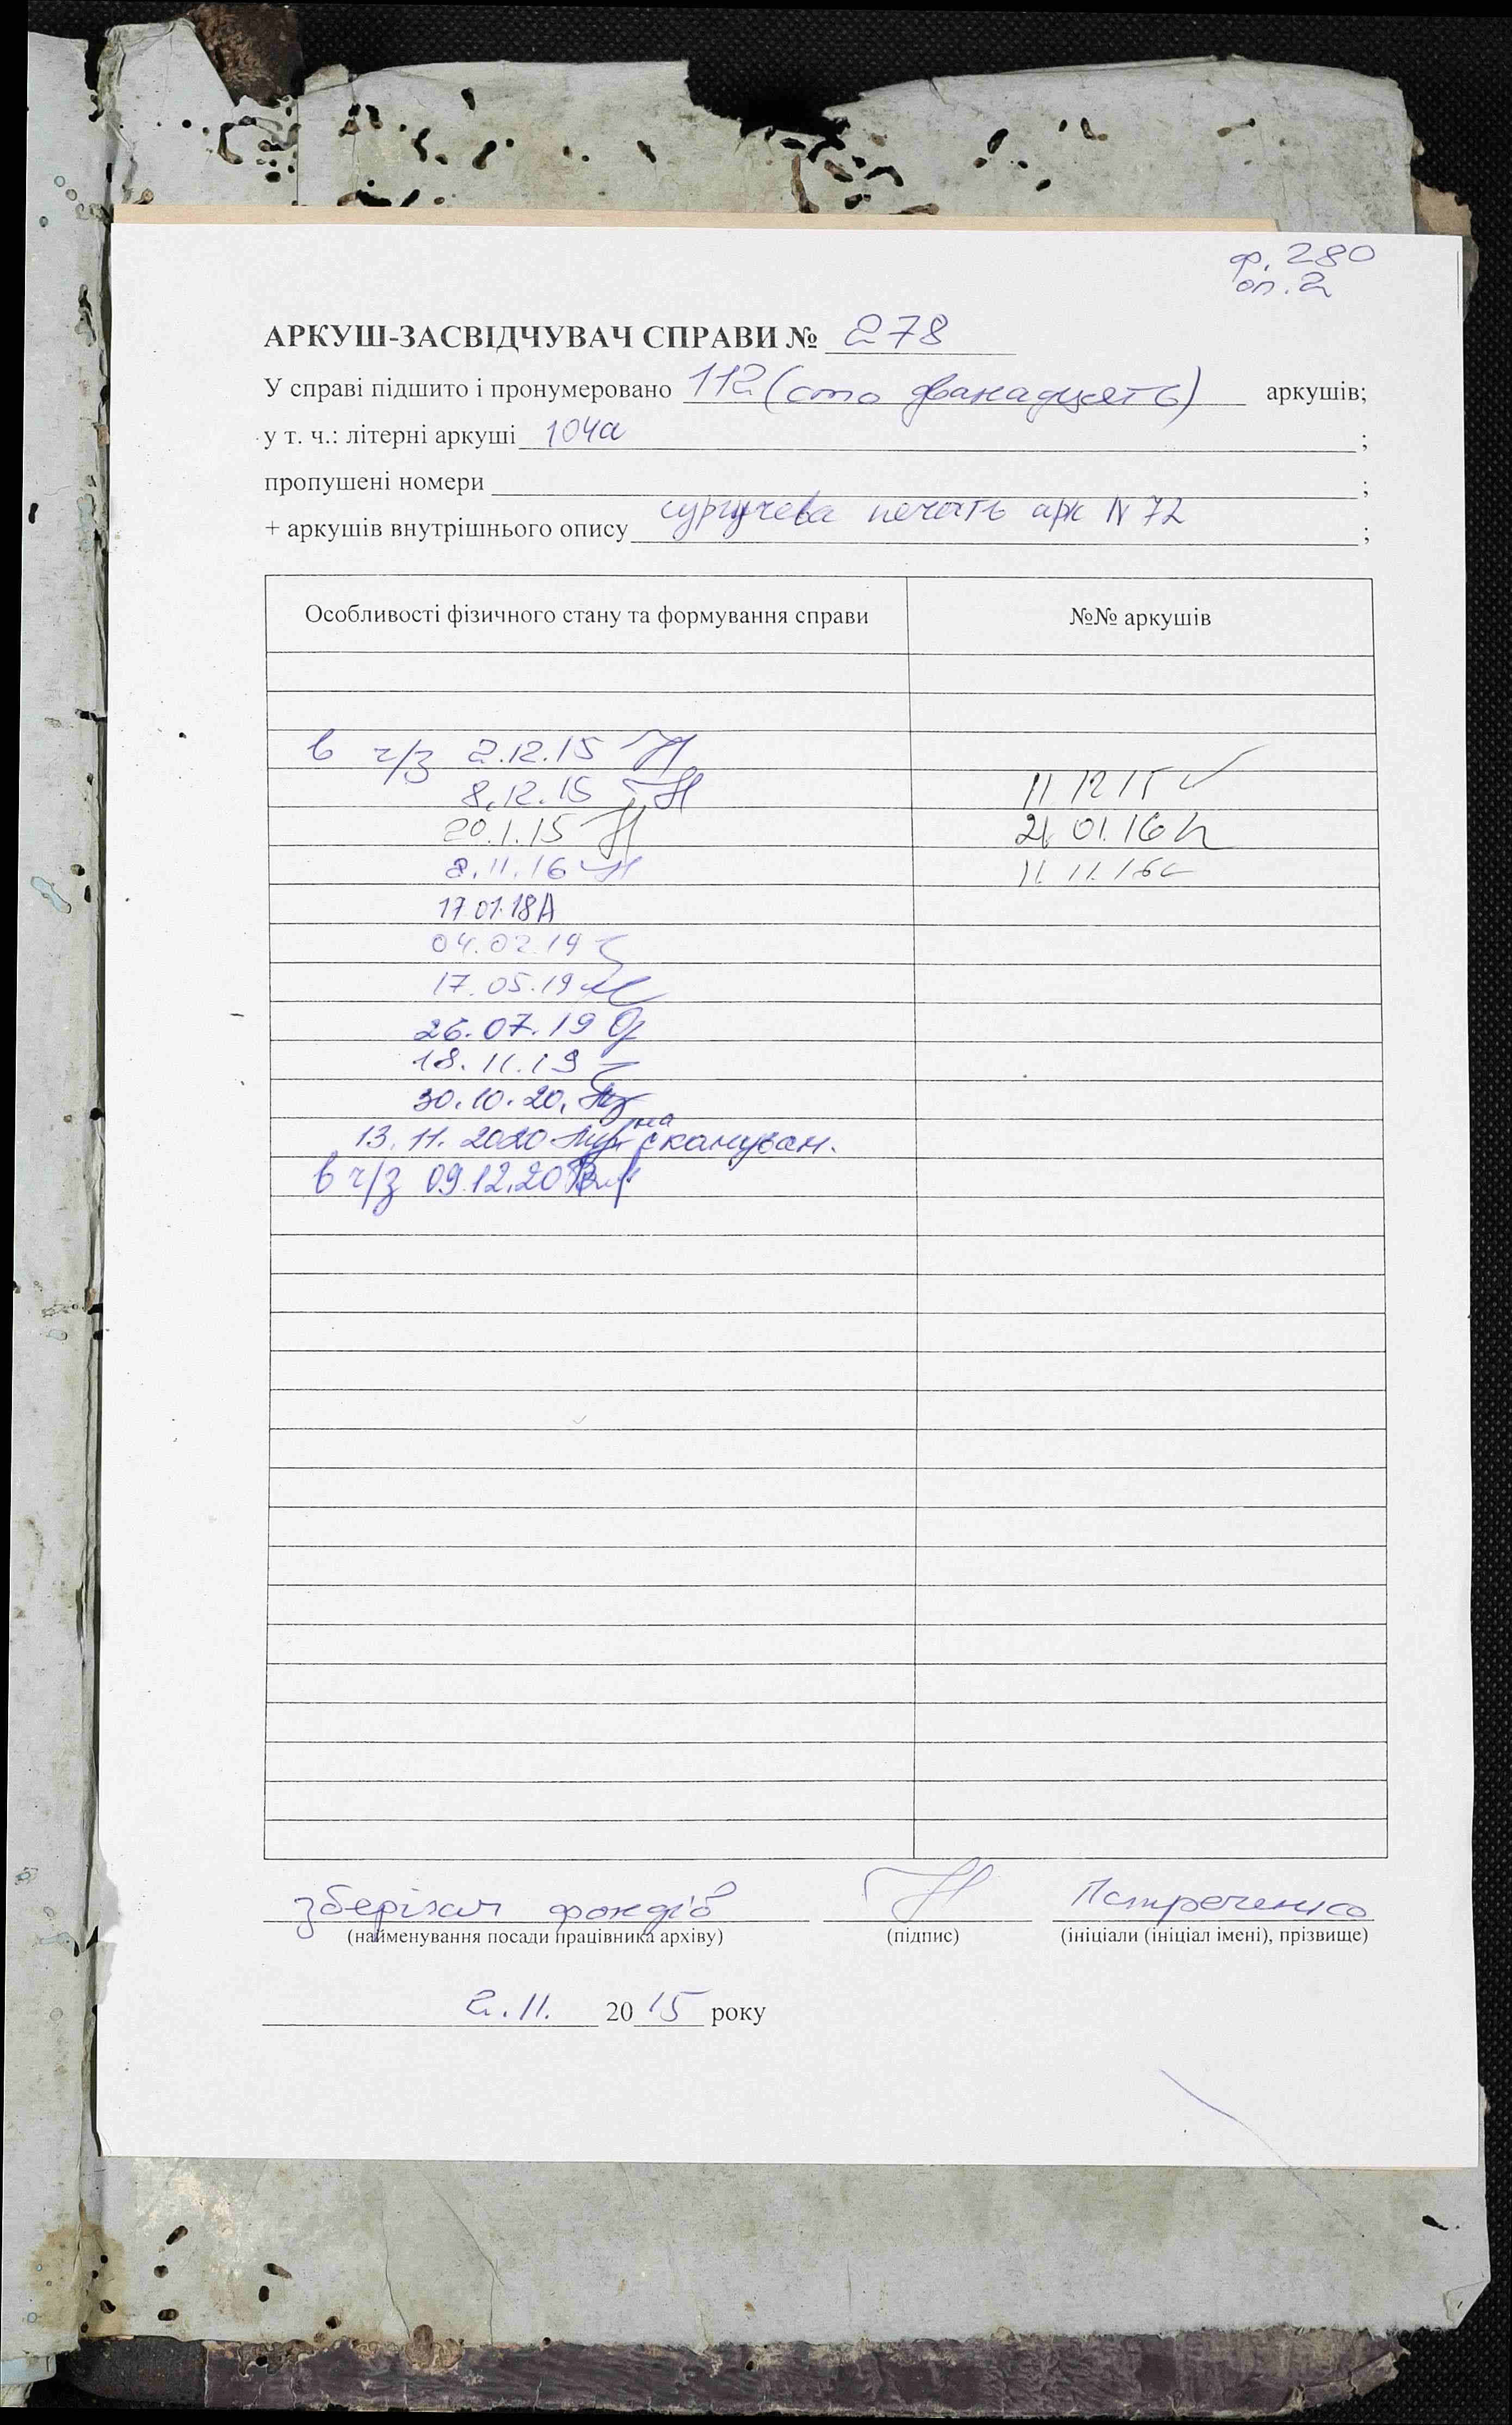 ф. 280
оп. 2
АРКУШ-ЗАСВІДЧУВАЧ СПРАВИ № 278
У справі підшито і пронумеровано 112 (сто дванадцять) аркушів;
у т. ч.: літерні аркуші 104а ;
пропущені номери ;
+ аркушів внутрішнього опису сургучева печать арк N 72 ;
Особливості фізичного стану та формування справи №№ аркушів
в ч/з 2.12.15
8.12.15 11 12 15
20.1.15 21 01.16
8.11.16 11 11.16
17.01.18
04.02.19
17.05.19
26.07.19
18.11.19
30.10.20.
13.11.2020 на скануван.
в ч/з 09.12.20
зберігач фондів
(найменування посади працівника архіву) (підпис) (ініціали (ініціал імені), прізвище)
2.11. 2015 року